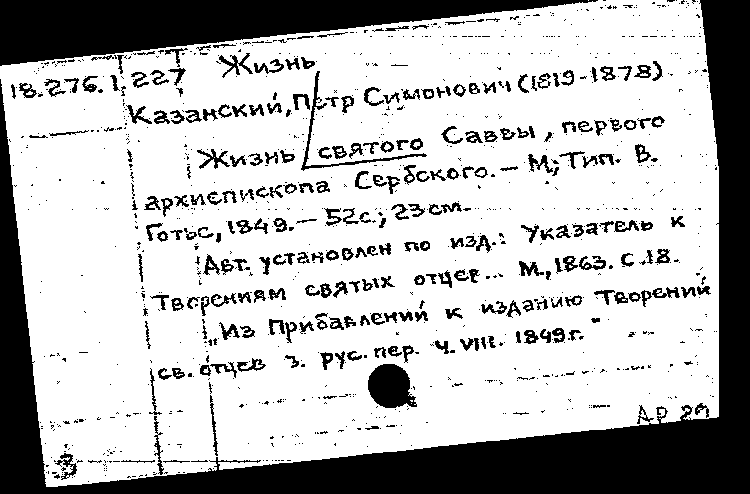 18.276.1.227 Жизнь
Казанский, Петр Симонович (1819-1878)
Жизнь святого Саввы, первого
архиепископа Сербского. — М.; Тип. В.
Готье, 1849. — 52с.; 23см.
Авт. установлен по изд.: Указатель к
Творениям святых отцев... М., 1863. С. 18.
„Из Прибавлений к изданию Творений
св. отцев з. рус. пер. Ч. VIII. 1849г."
АР
З